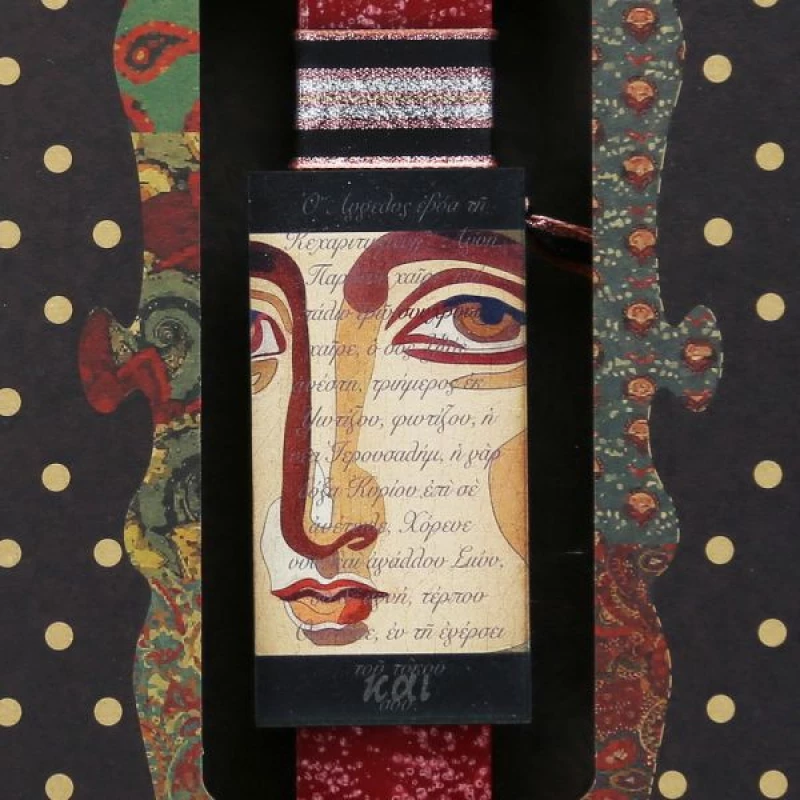 Ὁ Ἄγγελος ἐβόα τῇ
Κεχαριτωμένῃ· Ἁγνὴ
Παρθένε χαῖρε, καὶ
πάλιν ἐρῶ
χαῖρε, ὁ σὸς Υἱὸς
ἀνέστη, τριήμερος ἐκ
Φωτίζου, φωτίζου, ἡ
νέα Ἱερουσαλήμ, ἡ γὰρ
δόξα Κυρίου ἐπὶ σὲ
ἀνέτειλε, Χόρευε
νῦν καὶ ἀγάλλου Σιών,
ἁγνή, τέρπου
ἐν τῇ ἐγέρσει
τοῦ τόκου
σου.
και